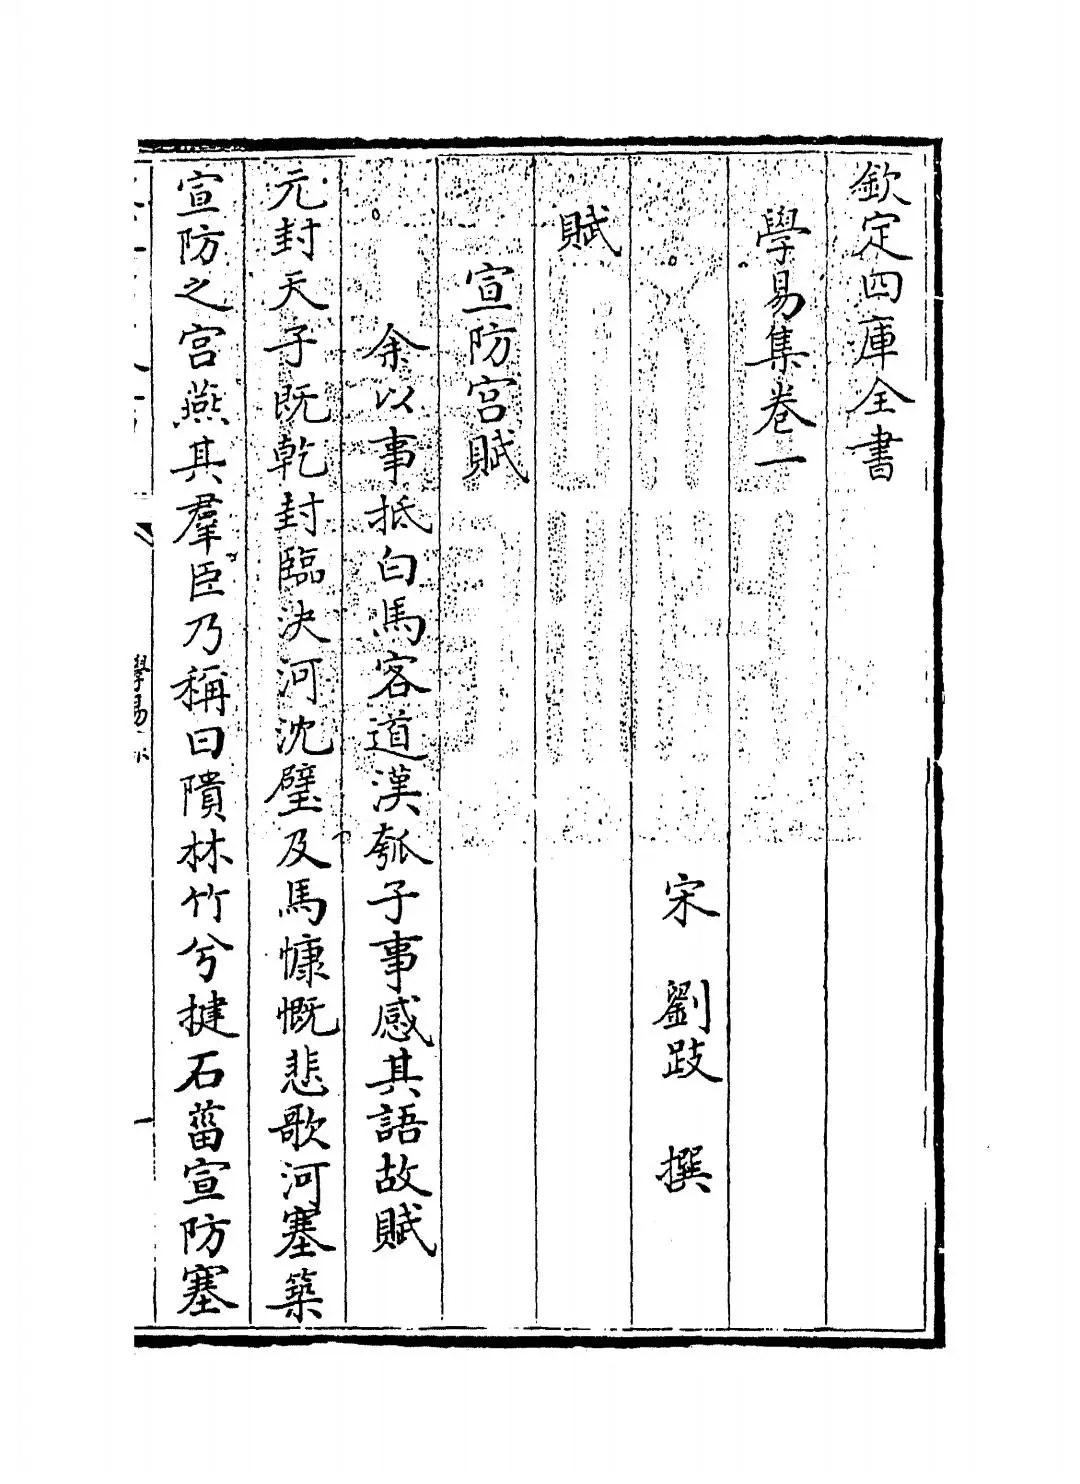 欽定四庫全書
學易集卷一
宋 劉跂 撰
賦
宣防宮賦
余以事抵白馬客道漢瓠子事感其語故賦
元封天子既乾封臨決河沈璧及馬慷慨悲歌河塞築
宣防之宮燕其羣臣乃稱曰隤林竹兮揵石菑宣防塞
學易
一